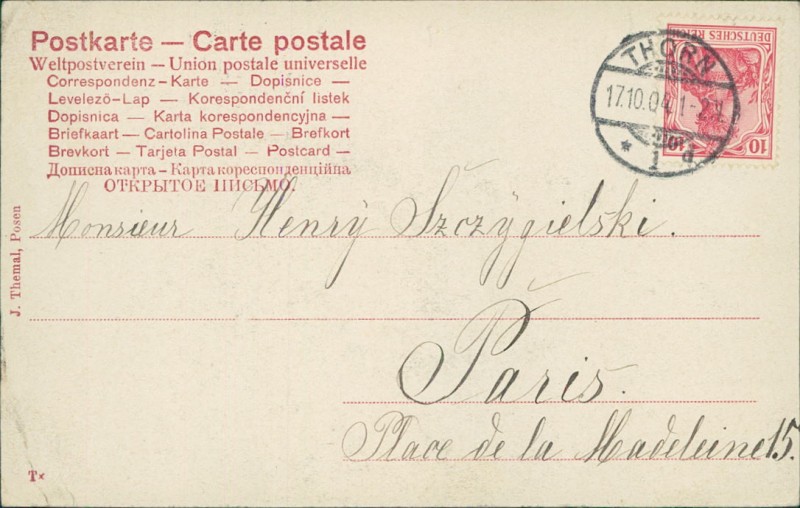 Postkarte — Carte postale
Weltpostverein — Union postale universelle
Correspondenz-Karte — Dopisnice —
Levelező-Lap — Korespondenční listek
Dopisnica — Karta korespondencyjna —
Briefkaart — Cartolina Postale — Brefkort
Brevkort — Tarjeta Postal — Postcard —
Дописна карта - Карта кореспонденційна
ОТКРЫТОЕ ПИСЬМО.
THORN
17.10.04. 1-2N.
* 1 d
DEUTSCHES REICH
10
10
Monsieur Henry Szczygielski.
Paris.
Place de la Madeleine 15.
J. Themal, Posen
T×